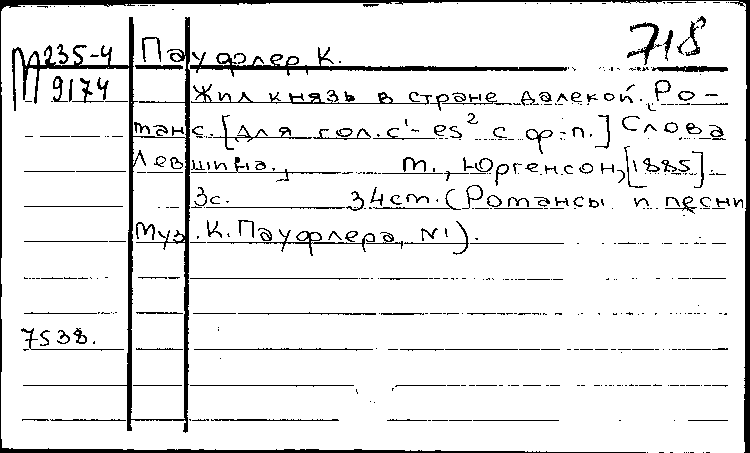 М 235-4 Пауфлер, К. 718
9174 Жил князь в стране далекой. Ро-
манс. [Для гол. c¹-es² с ф-п.] Слова
Левшина.
м., Юргенсон, [1885].
3с. 34см. (Романсы и песни
Муз. К. Пауфлера, №1).
7538.